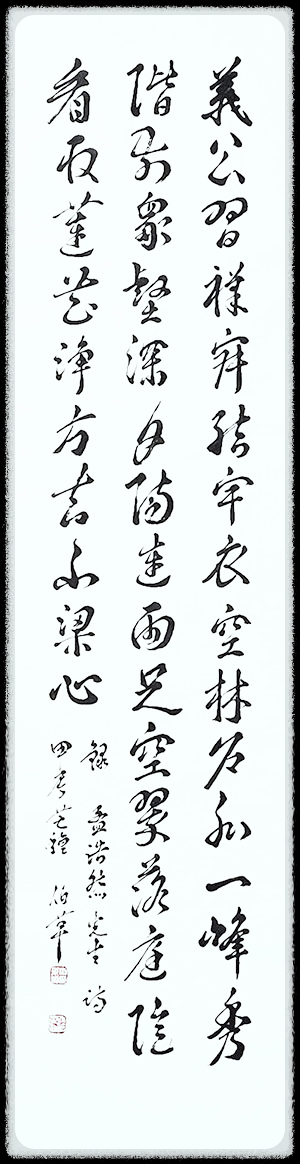 義公習禪寂結宇衣空林戶外一峰秀
階前眾壑深夕陽連雨足空翠落庭陰
看取蓮花淨方知不染心
錄 孟浩然先生詩
芒種